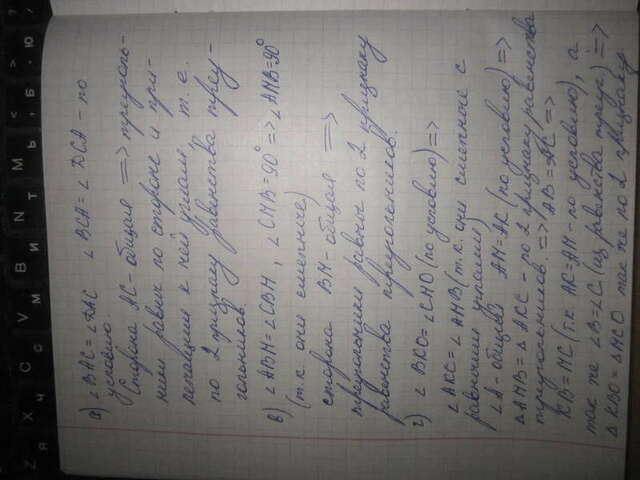 Z X C V B N M < >
Я Ч С М И Т Ь , Б . Ю
а) ∠BAC = ∠DAC ∠BCA = ∠DCA - по
условию.
Сторона AC - общая => треуголь-
ники равны по стороне и при-
лежащим к ней углам, т.е.
по 2 признаку равенства треу-
гольников.
в) ∠ABM = ∠CBM, ∠CMB = 90° => ∠AMB = 90°
(т.к. они смежные)
сторона BM - общая =>
треугольники равны по 2 признаку
равенства треугольников.
г) ∠BKO = ∠CMO (по условию) =>
∠AKC = ∠AMB (т.к. они смежные с
равными углами)
∠A - общий AM = AK (по условию) =>
△AMB = △AKC - по 2 признаку равенства
треугольников. => AB = AC =>
KB = MC (т.к. AK = AM - по условию), а
так же ∠B = ∠C (из равенства треуг.) =>
△KBO = △MCO так же по 2 признаку